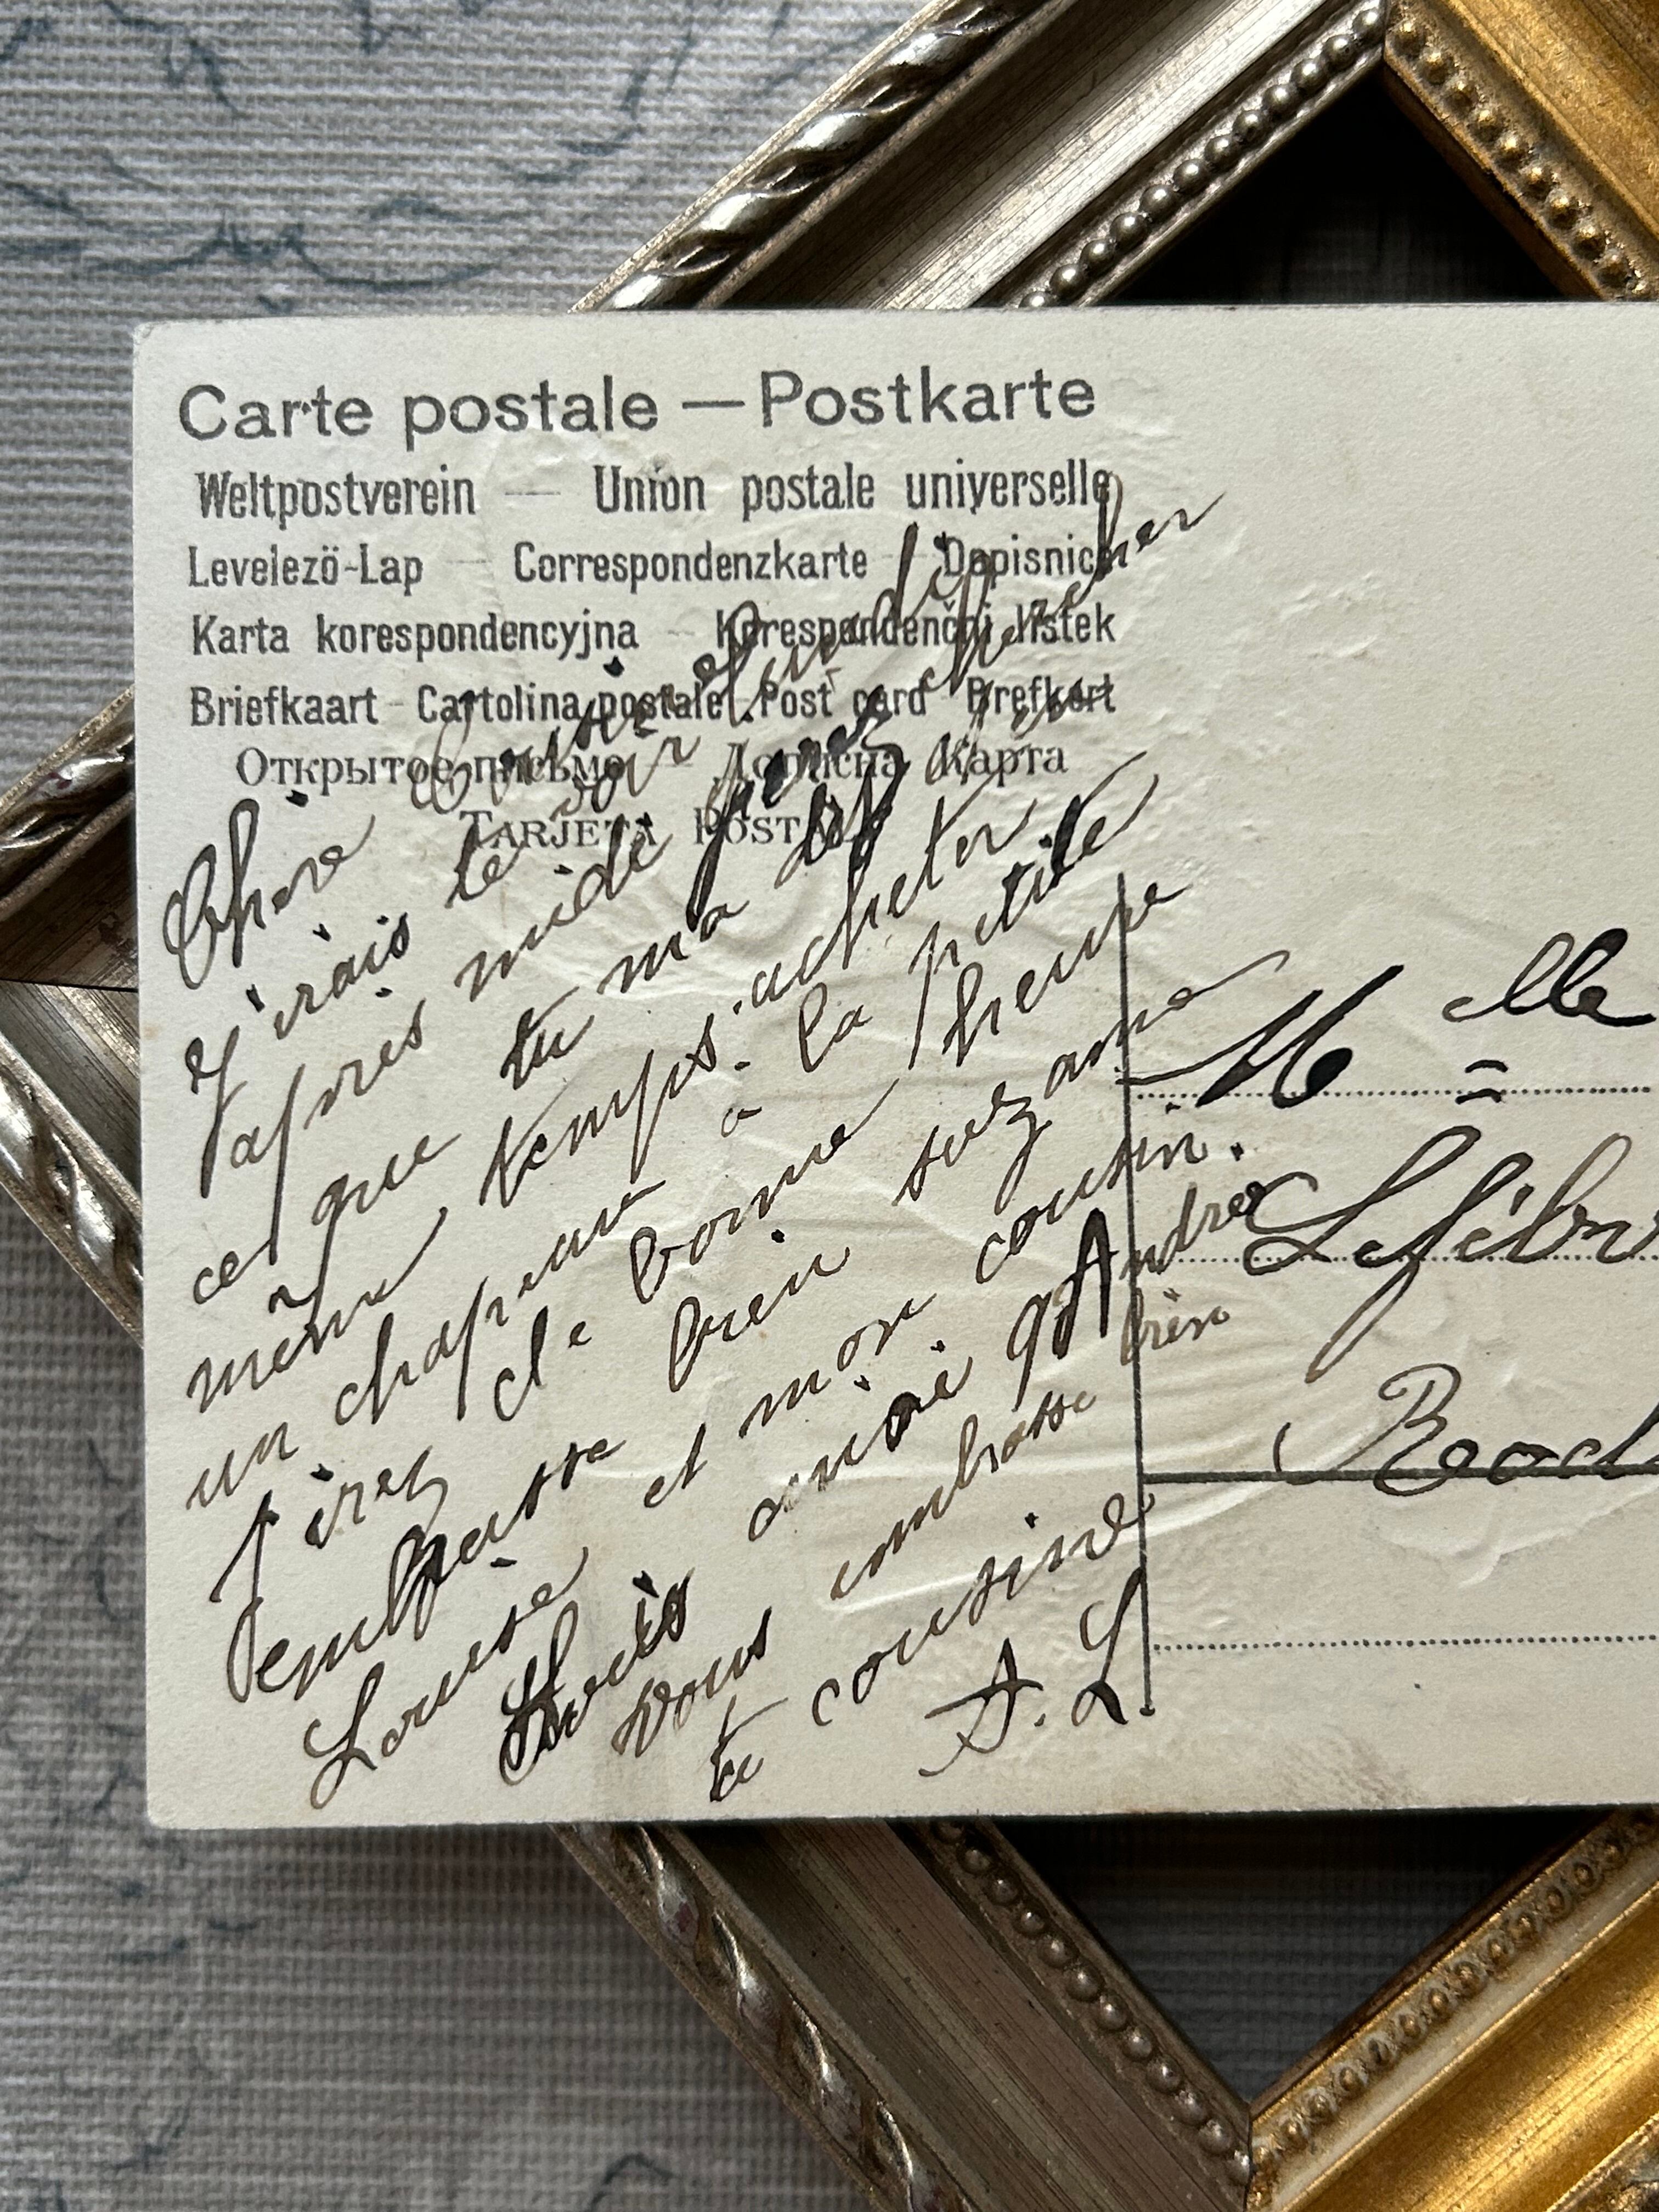 Carte postale — Postkarte
Weltpostverein — Union postale universelle
Levelezö-Lap — Correspondenzkarte — Dopisnice
Karta korespondencyjna — Korespondenčni listek
Briefkaart - Cartolina postale - Post card - Brefkort
Открытое письмо — Дописна карта
Tarjeta Postal
Chère Cousine
J'irais te voir lundi
après midi chercher
ce que tu m'a dit
même temps acheter
un chapeau à la petite
J'irez de bonne heure
embrasse bien suzanne
Louise et mon cousin.
Louis André
vous embrasse bien
ta cousine
A. L.
Mlle
Lefébv